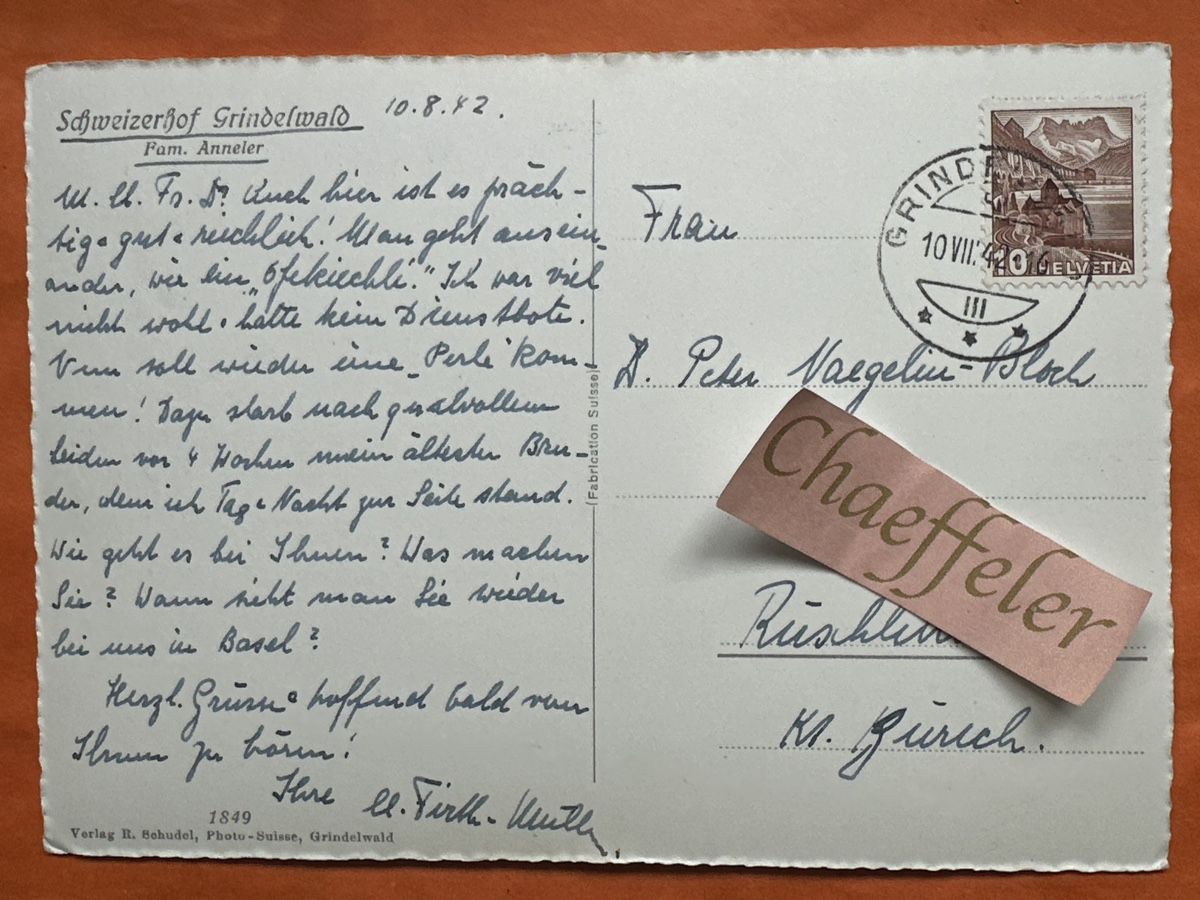 Schweizerhof Grindelwald 10.8.42.
Fam. Anneler
M. ll. Fr. Dr. Auch hier ist es präch-
tig & gut & reichlich! Man geht ausein-
ander, wie ein „Ofekiechli“. Ich war viel
nicht wohl & hatte kein Dienstbote.
Nun soll wieder eine „Perle“ kom-
men! Dazu starb nach qualvollem
Leiden vor 4 Wochen mein ältester Bru-
der, dem ich Tag & Nacht zur Seite stand.
Wie geht es bei Ihnen? Was machen
Sie? Wann sieht man Sie wieder
bei uns in Basel?
Herzl. Grüsse & hoffend bald von
Ihnen zu hören!
Ihre
1849
Verlag R. Schudel, Photo-Suisse, Grindelwald
(Fabrication Suisse)
GRINDE
10 VII. 42
III
10 HELVETIA
Frau
D. Peter Naegelin-Bloch
Chaeffeler
Rüschli
Kt. Zürich.